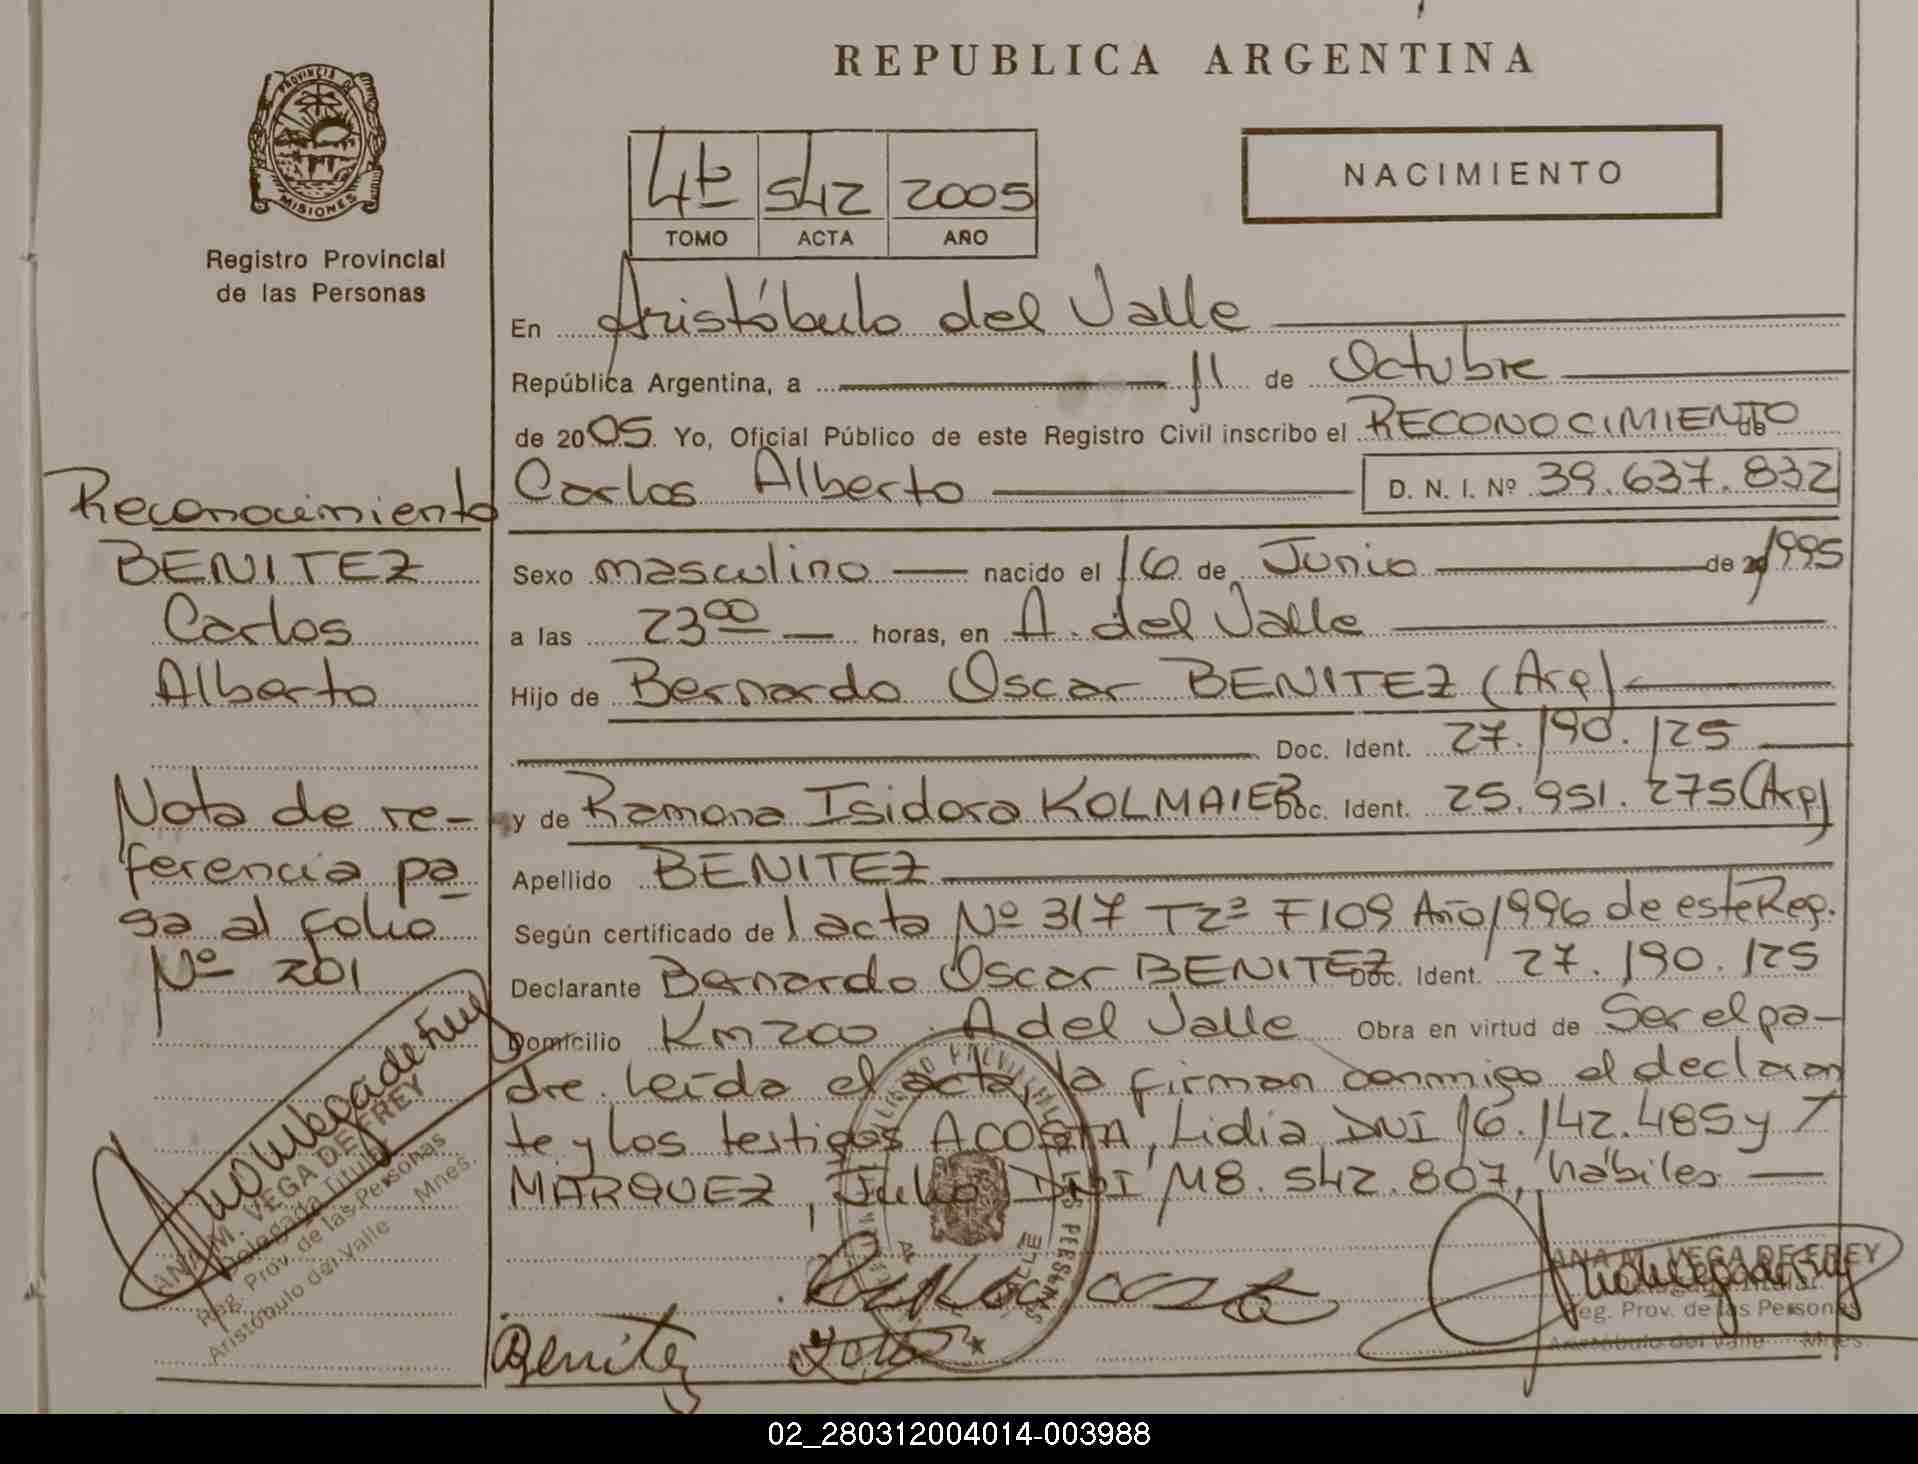 REPUBLICA ARGENTINA
PROVINCIA DE
MISIONES
Registro Provincial
de las Personas
4to 542 2005
TOMO ACTA AÑO
NACIMIENTO
En Aristóbulo del Valle
República Argentina, a 11 de Octubre
de 2005. Yo, Oficial Público de este Registro Civil inscribo el RECONOCIMIENTO de
Carlos Alberto D. N. I. Nº 39.637.832
Sexo masculino nacido el 16 de Junio de 1995
a las 23 00 horas, en A. del Valle
Hijo de Bernardo Oscar BENITEZ (Arg)
Doc. Ident. 27.190.125
y de Ramona Isidora KOLMAIER Doc. Ident. 25.951.275 (Arg)
Apellido BENITEZ
Según certificado de l acta Nº 317 T2º F109 Año 1996 de este Reg.
Declarante Bernardo Oscar BENITEZ Doc. Ident. 27.190.125
Domicilio Km 200 A del Valle Obra en virtud de Ser el pa-
dre. Leída el acta, la firman conmigo el declaran
te y los testigos ACOSTA, Lidia DNI 16.142.485 y
MARQUEZ, Julio DNI M8.542.807, hábiles
Reconocimiento
BENITEZ
Carlos
Alberto
Nota de re-
ferencia pa-
sa al folio
Nº 201
ANA M. VEGA DE FREY
Delegada Titular
Reg. Prov. de las Personas
Aristóbulo del Valle Mnes.
Benitez
ANA M. VEGA DE FREY
Reg. Prov. de las Personas
Aristóbulo del Valle Mnes.
02_280312004014-003988